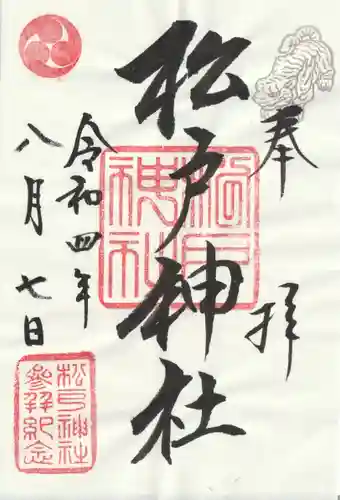 奉拝
松戸神社
令和四年
八月七日
松戸神社
松戸神社
参拝紀念